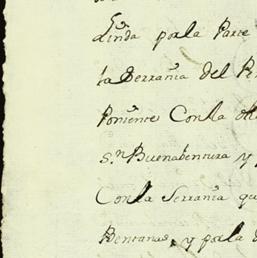 Linda por la Parte
la Serrania del R
Poniente Con la ott
S.n Buenabentura y
Con la Serrania qu
Bentanas, y por la